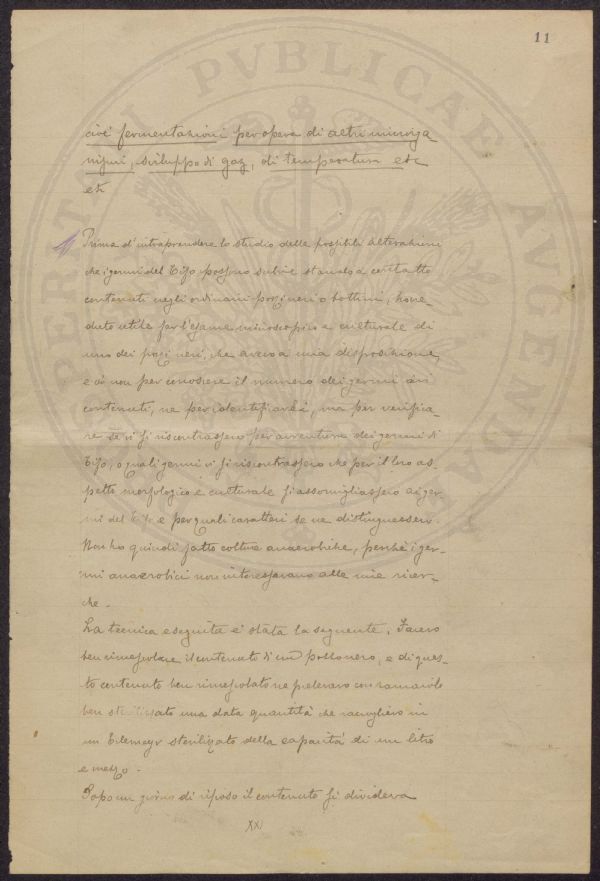 11
cioè fermentazioni per opera di altri microrga
nismi, sviluppo di gaz, di temperatura etc
etc
Prima d'intraprendere lo studio delle possibili alterazioni
che i germi del Tifo possono subire stando a contatto
contenuti negli ordinari pozzi neri o bottini, ho ve
duto utile far l'esame microscopico e culturale di
uno dei pozzi neri, che aveva a mia disposizione,
e ciò non per conoscere il numero dei germi ivi
contenuti, ne per identificarli, ma per verifica
re se vi si riscontrassero per avventura dei germi di
Tifo, o quali germi vi si riscontrassero che per il loro as-
petto morfologico e culturale si assomigliassero ai ger
mi del Tifo e per quali caratteri se ne distinguessero.
Non ho quindi fatto colture anaerobiche, perché i ger-
mi anaerobici non interessavano alle mie ricer-
che.
La tecnica eseguita è stata la seguente. Facevo
ben rimescolare il contenuto di un pozzo nero, e di ques-
to contenuto ben rimescolato ne prelevavo con ramaiolo
ben sterilizzato una data quantità che raccoglievo in
un Erlemeyr sterilizato della capacità di un litro
e mezzo.
Dopo un giorno di riposo il contenuto si divideva
XX
PROSPERITATI PVBLICAE AVGENDAE